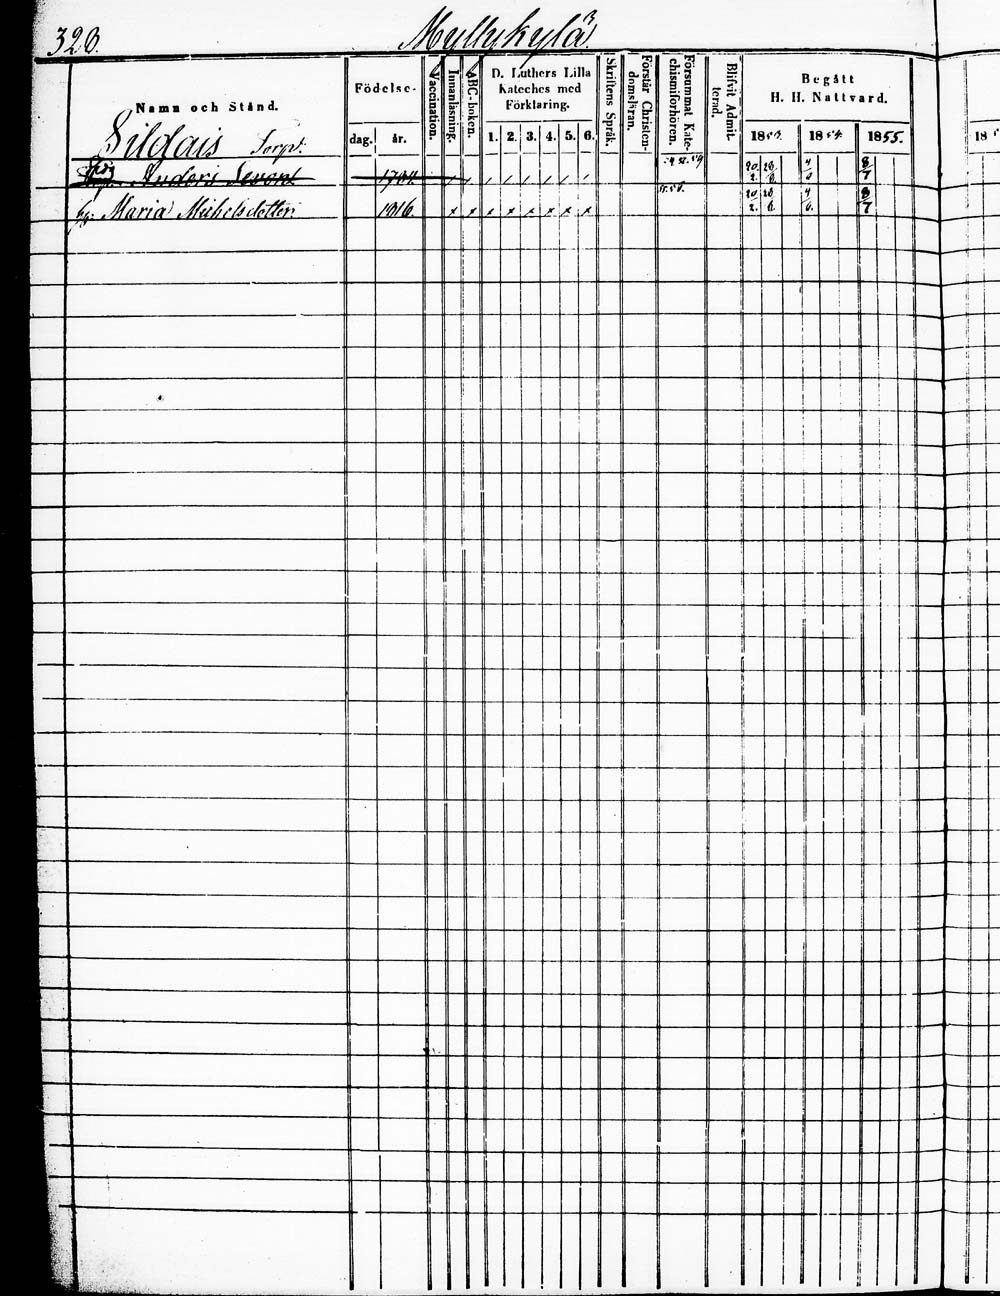 328.
Myllykylä 3
Namn och Stånd.
Födelse-
dag. år.
Vaccination.
Innanläsning.
ABC-boken.
D. Luthers Lilla
Kateches med
Förklaring.
1. 2. 3. 4. 5. 6.
Skriftens Språk.
Förstår Christen-
domsläran.
Försummat Kate-
chismiförhören.
Blifvit Admit-
terad.
Begått
H. H. Nattvard.
1853. 1854. 1855.
18
Sildais Torp:
Anders 8/7
Maria Michelsdotter 1816. x x x x x x x x 8/7